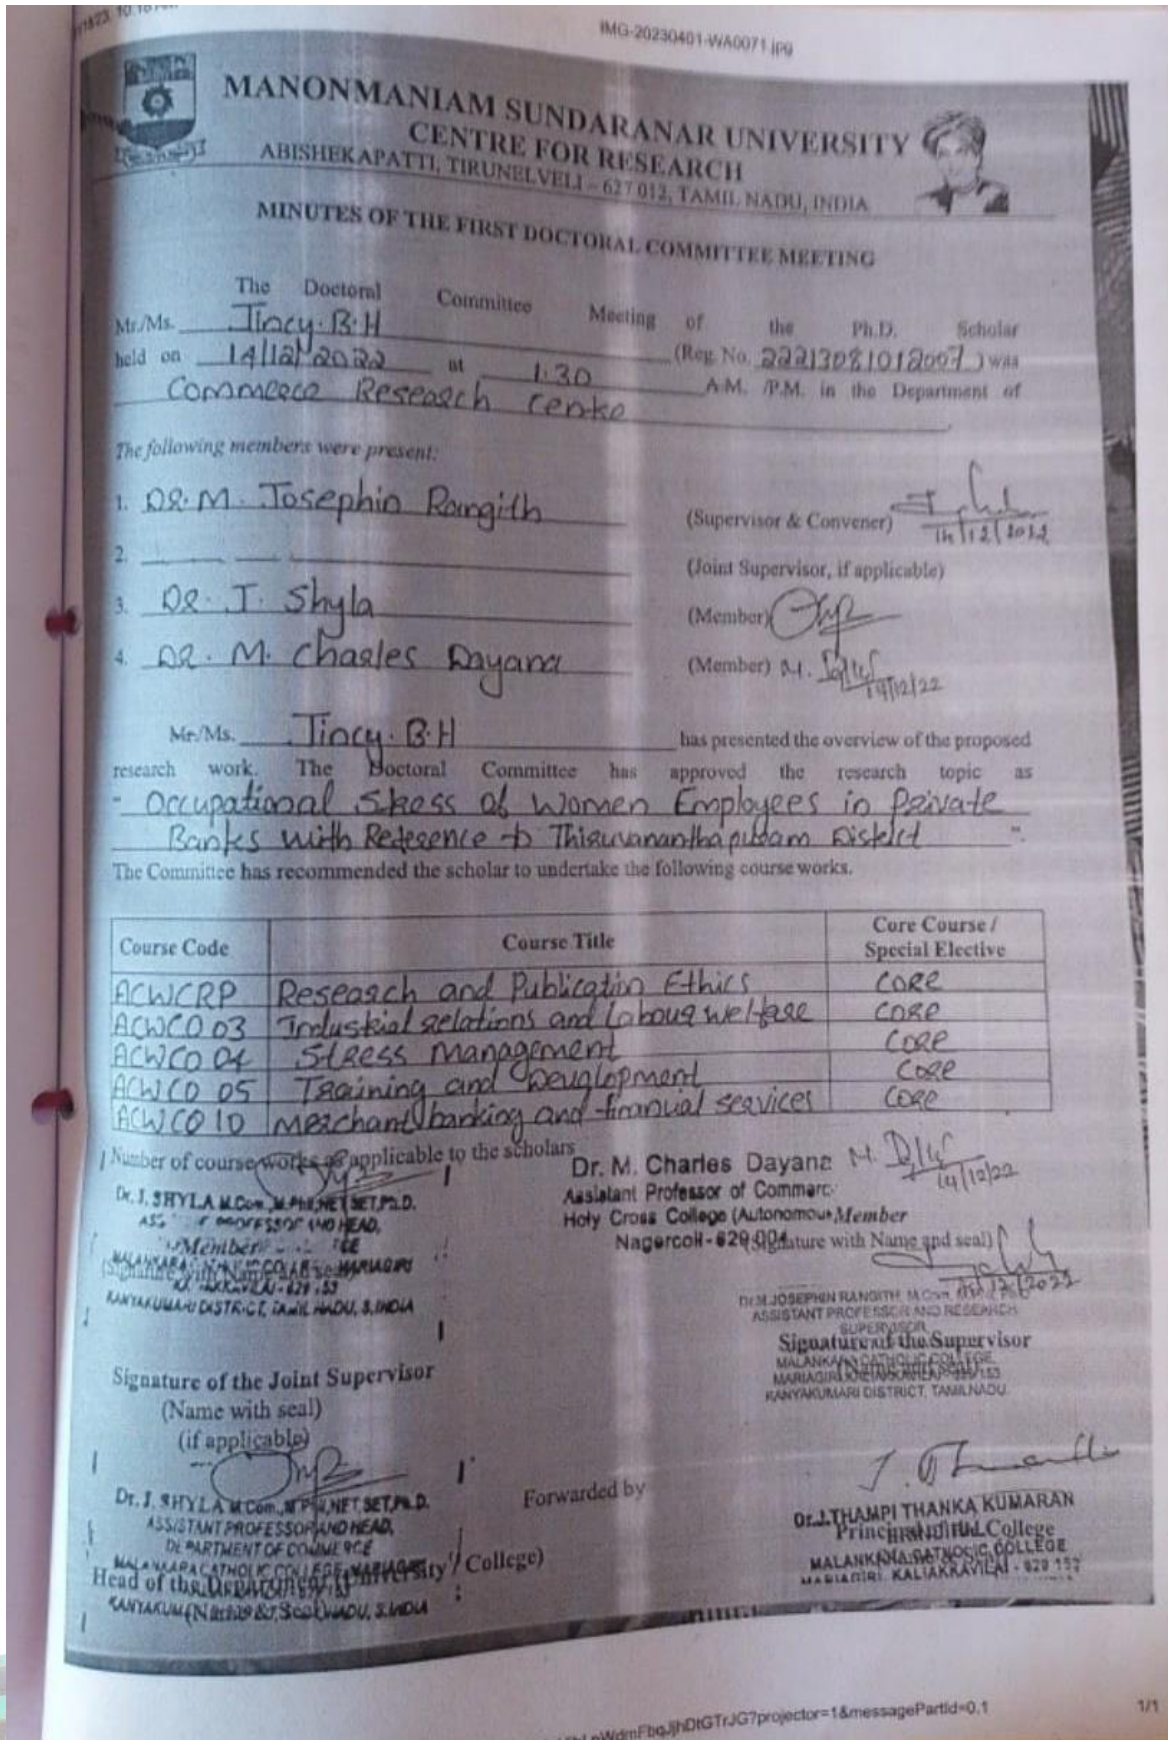 IMG-20230401-WA0071.jpg
MANONMANIAM SUNDARANAR UNIVERSITY
CENTRE FOR RESEARCH
ABISHEKAPATTI, TIRUNELVELI – 627 012, TAMIL NADU, INDIA
MINUTES OF THE FIRST DOCTORAL COMMITTEE MEETING
The Doctoral Committee Meeting of the Ph.D. Scholar
Mr./Ms. Jincy. B.H (Reg. No. 22213081012007) was
held on 14/12/2022 at 1.30 A.M. /P.M. in the Department of
Commerce Research Centre
The following members were present:
1. DR. M. Josephin Rangith (Supervisor & Convener) 14/12/2022
2. (Joint Supervisor, if applicable)
3. DR. J. Shyla (Member)
4. DR. M. Charles Dayana (Member) 14/12/22
Mr/Ms. Jincy. B.H has presented the overview of the proposed
research work. The Doctoral Committee has approved the research topic as
" Occupational Stress of Women Employees in Private
Banks with Reference to Thiruvananthapuram District ".
The Committee has recommended the scholar to undertake the following course works.
Course Code Course Title Core Course / Special Elective
ACWCRP Research and Publication Ethics CORE
ACWCO 03 Industrial relations and Labour welfare CORE
ACWCO 04 Stress Management CORE
ACWCO 05 Training and Development CORE
ACWCO 10 Merchant banking and financial services CORE
Number of course works as applicable to the scholars
Dr. M. Charles Dayana 14/12/22
Assistant Professor of Commerc
Holy Cross College (Autonomous Member
Nagercoil - 629 004 (Signature with Name and seal)
Dr. J. SHYLA M.Com., M.Phil, NET, SET, Ph.D.
PROFESSOR AND HEAD,
Member
(Signature with Name and seal)
KANYAKUMARI DISTRICT, TAMIL NADU, S.INDIA
Dr. M. JOSEPHIN RANGITH, M.Com
ASSISTANT PROFESSOR AND RESEARCH
SUPERVISOR
Signature of the Supervisor
MALANKARA CATHOLIC COLLEGE
KANYAKUMARI DISTRICT, TAMILNADU.
Signature of the Joint Supervisor
(Name with seal)
(if applicable)
Dr. J. SHYLA M.Com., M.Phil, NET, SET, Ph.D.
ASSISTANT PROFESSOR AND HEAD,
DEPARTMENT OF COMMERCE
MALANKARA CATHOLIC COLLEGE, MARIAGIRI
Head of the Department (University / College)
(Name & Seal)
Forwarded by
Dr. J. THAMPI THANKA KUMARAN
Principal of the College
MALANKARA CATHOLIC COLLEGE
MARIAGIRI, KALIAKKAVILAI - 629 153
?projector=1&messagePartId=0.1
1/1